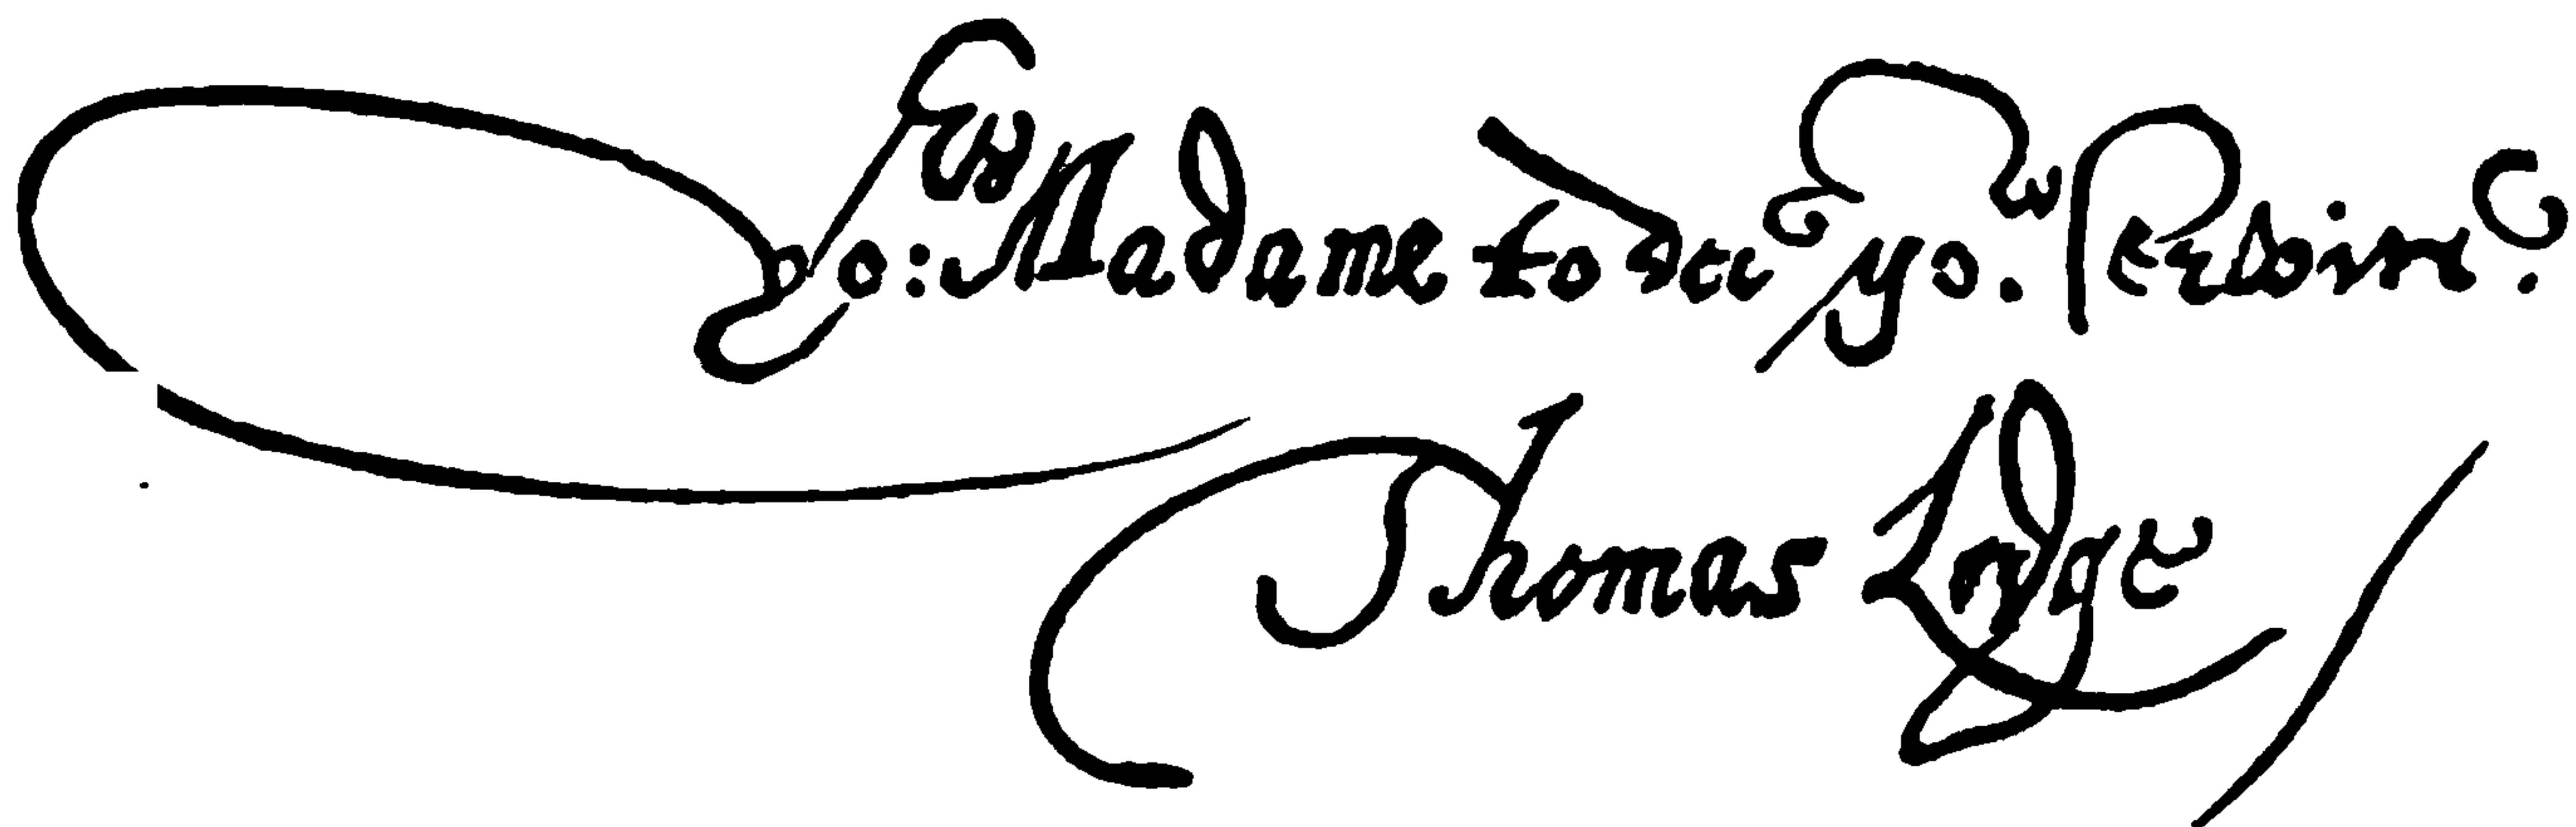 yo:ʳ Madame to doe yo.ʳ service.
Thomas Lodge